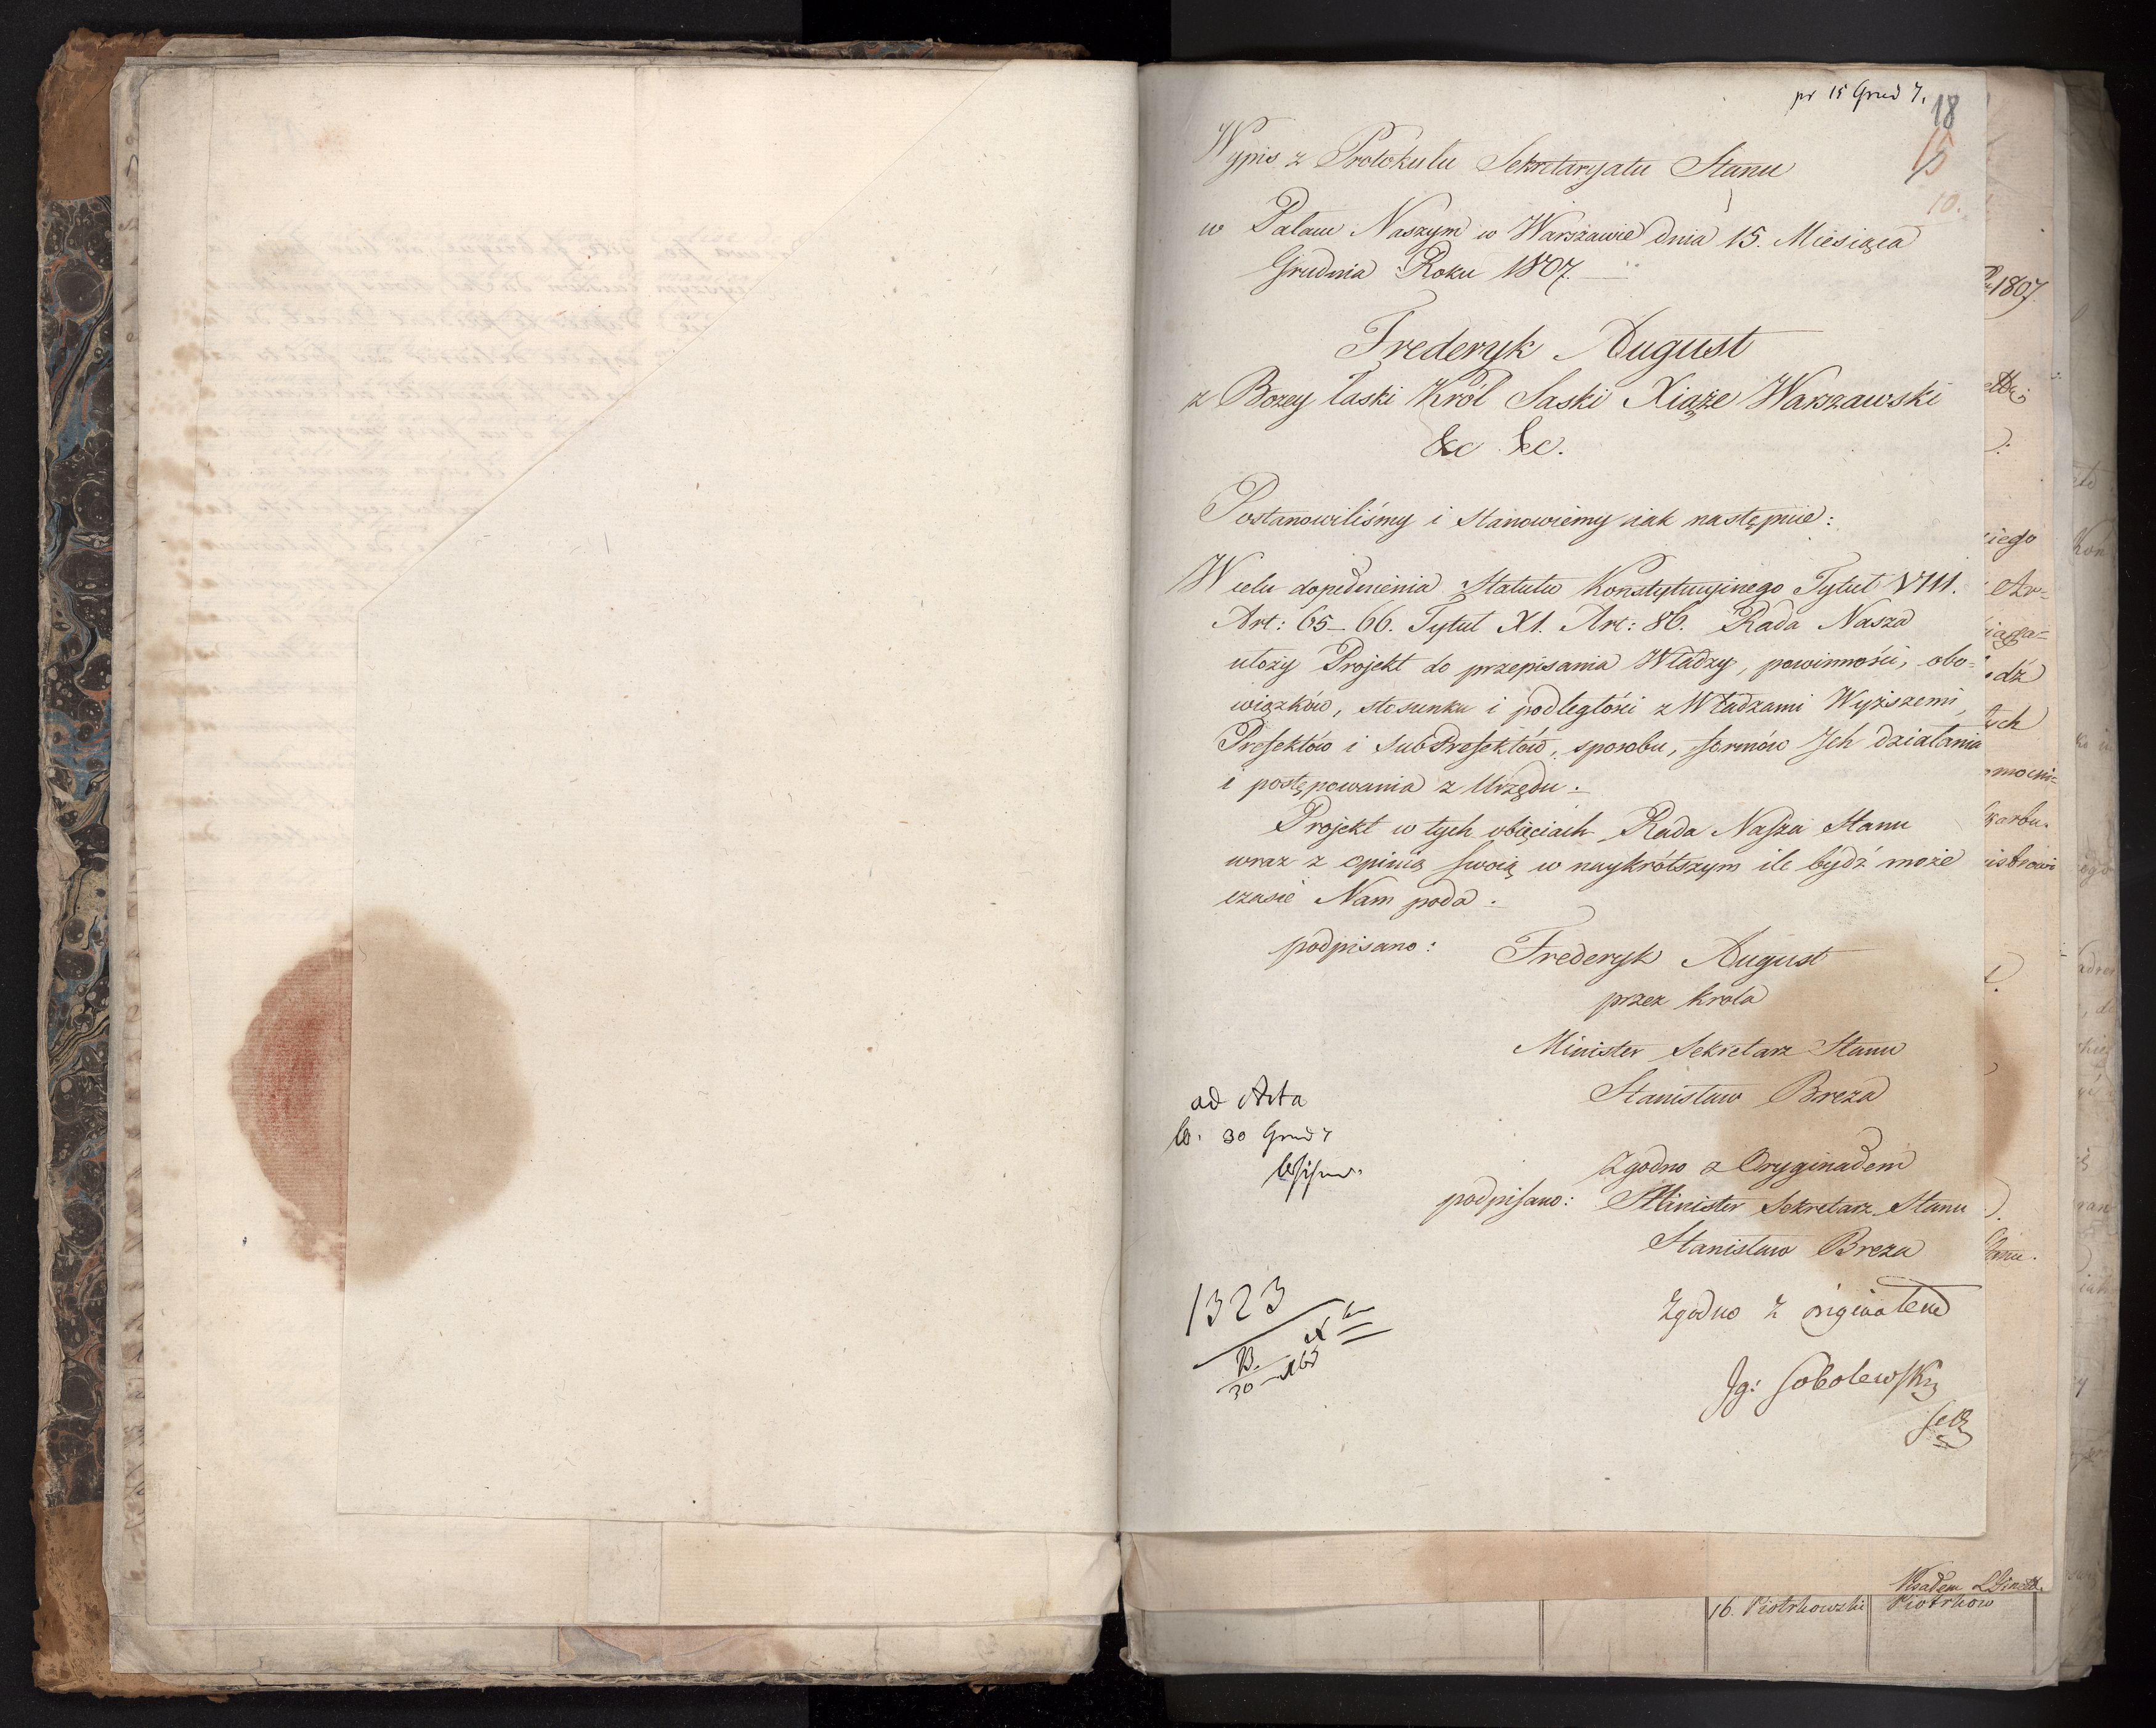 pr 15 Grud 7.
18
15
10.
Wypis z Protokułu Sekretaryatu Stanu
w Pałacu Naszym w Warszawie dnia 15. Miesiąca
Grudnia Roku 1807.
Frederyk August
z Bożey łaski Król Saski Xiąże Warszawski
&c &c.
Postanowiliśmy i Stanowiemy iak następuie:
W celu dopełnienia Statutu Konstytucyinego Tytuł VIII.
Art: 65 – 66. Tytuł XI. Art: 86. Rada Nasza
ułoży Projekt do przepisania Władzy, powinności, obo=
wiązków, stosunku i podległości z Władzami Wyższemi,
Prefektów i SubPrefektów, sposobu, formów Ich działania
i postępowania z Urzędu.
Projekt w tych obięciach Rada Nasza Stanu
wraz z opinią swoią w naykrótszym ile bydź może
czasie Nam poda.
podpisano: Frederyk August
przez Krola
Minister Sekretarz Stanu
Stanisław Breza
ad Acta
30 Grud 7
Zgodno z Oryginałem
podpisano: Minister Sekretarz Stanu
Stanisław Breza
1323
B.
30
Zgodno z originałem
Jg: Sobolewski
1807.
iego
dź
tych
omocni=
karbu.
16. Piotrkowski
Piotrków